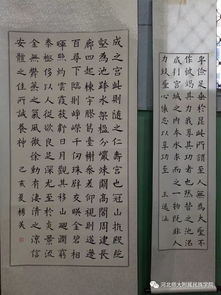 成之宮此則隨之仁壽宮也冠山抗殿絕
壑為池跨水架楹分巖竦闕高閣周建長
廊四起棟宇膠葛臺榭參差仰視則迢遞
百尋下臨則崢嶸千仞珠璧交映金碧相
暉照灼雲霞蔽虧日月觀其移山迴澗窮
泰極侈以人從欲良足深尤至於炎景流
金無鬱蒸之氣微風徐動有淒清之涼信
安體之佳所誠養神 己亥夏
所謂至人無為大聖不
作彼竭其力我享其功者也然昔之池沼
咸引宮城之內本乏水求而無之一物既非人
力聖心懷之不忘
河北师大附属民族学院